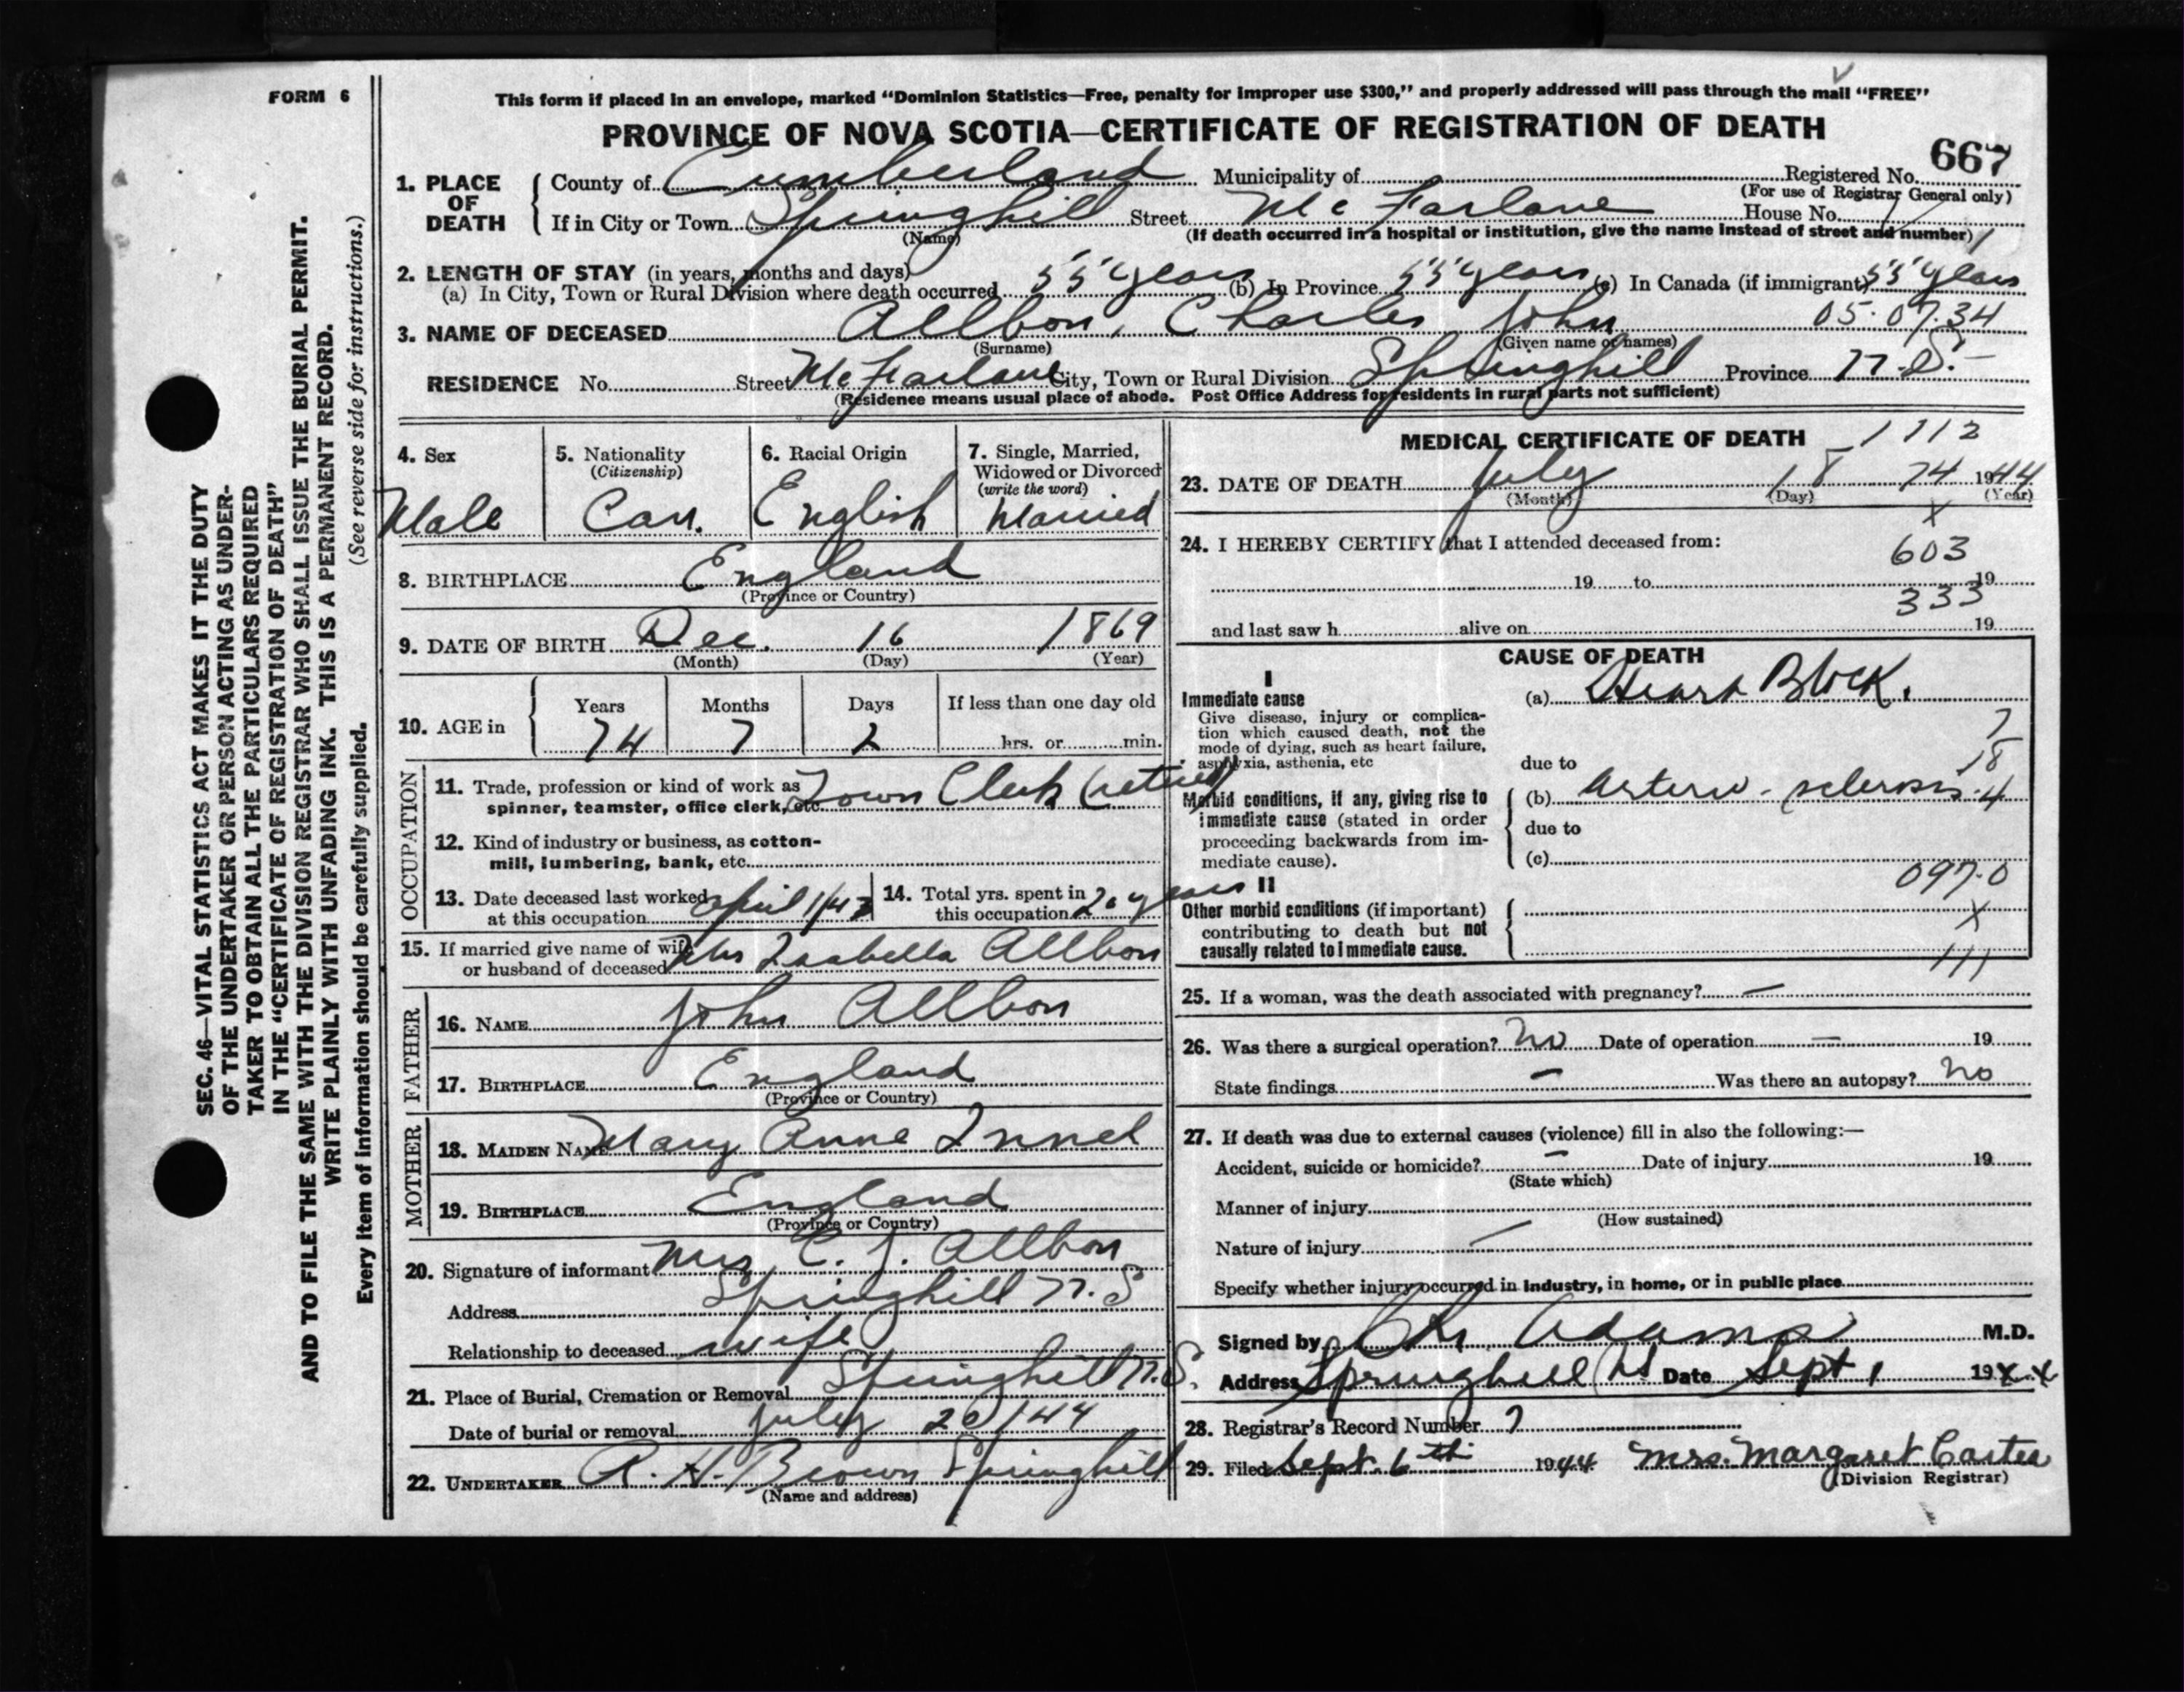 FORM 6
This form if placed in an envelope, marked "Dominion Statistics—Free, penalty for improper use $300," and properly addressed will pass through the mail "FREE"
PROVINCE OF NOVA SCOTIA—CERTIFICATE OF REGISTRATION OF DEATH
667
1. PLACE OF DEATH County of Cumberland Municipality of Registered No.
(For use of Registrar General only)
If in City or Town Springhill Street McFarlane House No.
(Name) (If death occurred in a hospital or institution, give the name instead of street and number)
2. LENGTH OF STAY (in years, months and days)
(a) In City, Town or Rural Division where death occurred 55 years (b) In Province 55 years (c) In Canada (if immigrant) 55 years
3. NAME OF DECEASED Allbon, Charles John 05.07.34
(Surname) (Given name or names)
RESIDENCE No. Street McFarlane City, Town or Rural Division Springhill Province N.S.
(Residence means usual place of abode. Post Office Address for residents in rural parts not sufficient)
SEC. 46—VITAL STATISTICS ACT MAKES IT THE DUTY
OF THE UNDERTAKER OR PERSON ACTING AS UNDER-
TAKER TO OBTAIN ALL THE PARTICULARS REQUIRED
IN THE "CERTIFICATE OF REGISTRATION OF DEATH"
AND TO FILE THE SAME WITH THE DIVISION REGISTRAR WHO SHALL ISSUE THE BURIAL PERMIT.
WRITE PLAINLY WITH UNFADING INK. THIS IS A PERMANENT RECORD.
Every item of information should be carefully supplied. (See reverse side for instructions.)
4. Sex Male
5. Nationality (Citizenship) Can.
6. Racial Origin English
7. Single, Married, Widowed or Divorced (write the word) Married
8. BIRTHPLACE England
(Province or Country)
9. DATE OF BIRTH Dec. 16 1869
(Month) (Day) (Year)
10. AGE in Years Months Days If less than one day old
74 7 2 hrs. or min.
OCCUPATION
11. Trade, profession or kind of work as
spinner, teamster, office clerk, etc. Town Clerk (retired)
12. Kind of industry or business, as cotton-
mill, lumbering, bank, etc.
13. Date deceased last worked
at this occupation April 1/43
14. Total yrs. spent in
this occupation 20 years
15. If married give name of wife
or husband of deceased Mrs Isabella Allbon
FATHER
16. NAME John Allbon
17. BIRTHPLACE England
(Province or Country)
MOTHER
18. MAIDEN NAME Mary Anne
19. BIRTHPLACE England
(Province or Country)
20. Signature of informant Mrs C. J. Allbon
Address Springhill N.S
Relationship to deceased wife
21. Place of Burial, Cremation or Removal Springhill N.S.
Date of burial or removal July 20/44
22. UNDERTAKER R. H. Brown Springhill
(Name and address)
MEDICAL CERTIFICATE OF DEATH 1112
23. DATE OF DEATH July 18 74 1944
(Month) (Day) (Year)
X
24. I HEREBY CERTIFY that I attended deceased from:
603
19 to 19
333
and last saw h alive on 19
CAUSE OF DEATH
I
Immediate cause
Give disease, injury or complica-
tion which caused death, not the
mode of dying, such as heart failure,
asphyxia, asthenia, etc
(a) Heart Block.
7
18
4
due to
Morbid conditions, if any, giving rise to
immediate cause (stated in order
proceeding backwards from im-
mediate cause).
(b) Arterio-sclerosis
due to
(c)
097.0
II
Other morbid conditions (if important)
contributing to death but not
causally related to immediate cause.
X
111
25. If a woman, was the death associated with pregnancy? —
26. Was there a surgical operation? No Date of operation — 19
State findings — Was there an autopsy? No
27. If death was due to external causes (violence) fill in also the following:—
Accident, suicide or homicide? — Date of injury 19
(State which)
Manner of injury
(How sustained)
Nature of injury —
Specify whether injury occurred in industry, in home, or in public place
Signed by Adams M.D.
Address Springhill NS Date Sept 1 1944
28. Registrar's Record Number 7
29. Filed Sept. 6th 1944 Mrs. Margaret Carter
(Division Registrar)